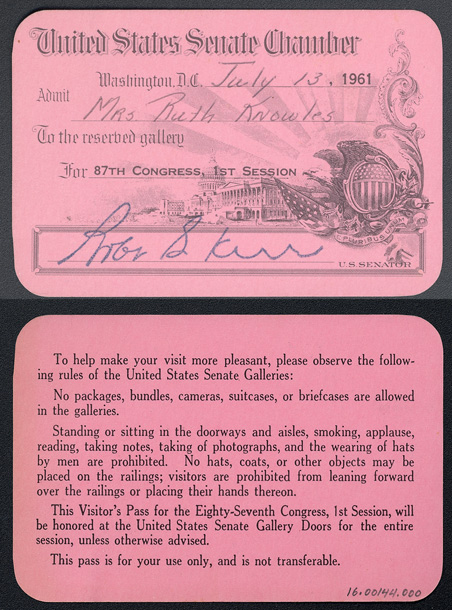 United States Senate Chamber
Washington, D.C. July 13, 1961
Admit
Mrs Ruth Knowles
To the reserved gallery
For 87TH CONGRESS, 1ST SESSION
PLURIBUS
Robt S Kerr
U.S. SENATOR
To help make your visit more pleasant, please observe the follow-
ing rules of the United States Senate Galleries:
No packages, bundles, cameras, suitcases, or briefcases are allowed
in the galleries.
Standing or sitting in the doorways and aisles, smoking, applause,
reading, taking notes, taking of photographs, and the wearing of hats
by men are prohibited. No hats, coats, or other objects may be
placed on the railings; visitors are prohibited from leaning forward
over the railings or placing their hands thereon.
This Visitor's Pass for the Eighty-Seventh Congress, 1st Session, will
be honored at the United States Senate Gallery Doors for the entire
session, unless otherwise advised.
This pass is for your use only, and is not transferable.
16.00144.000